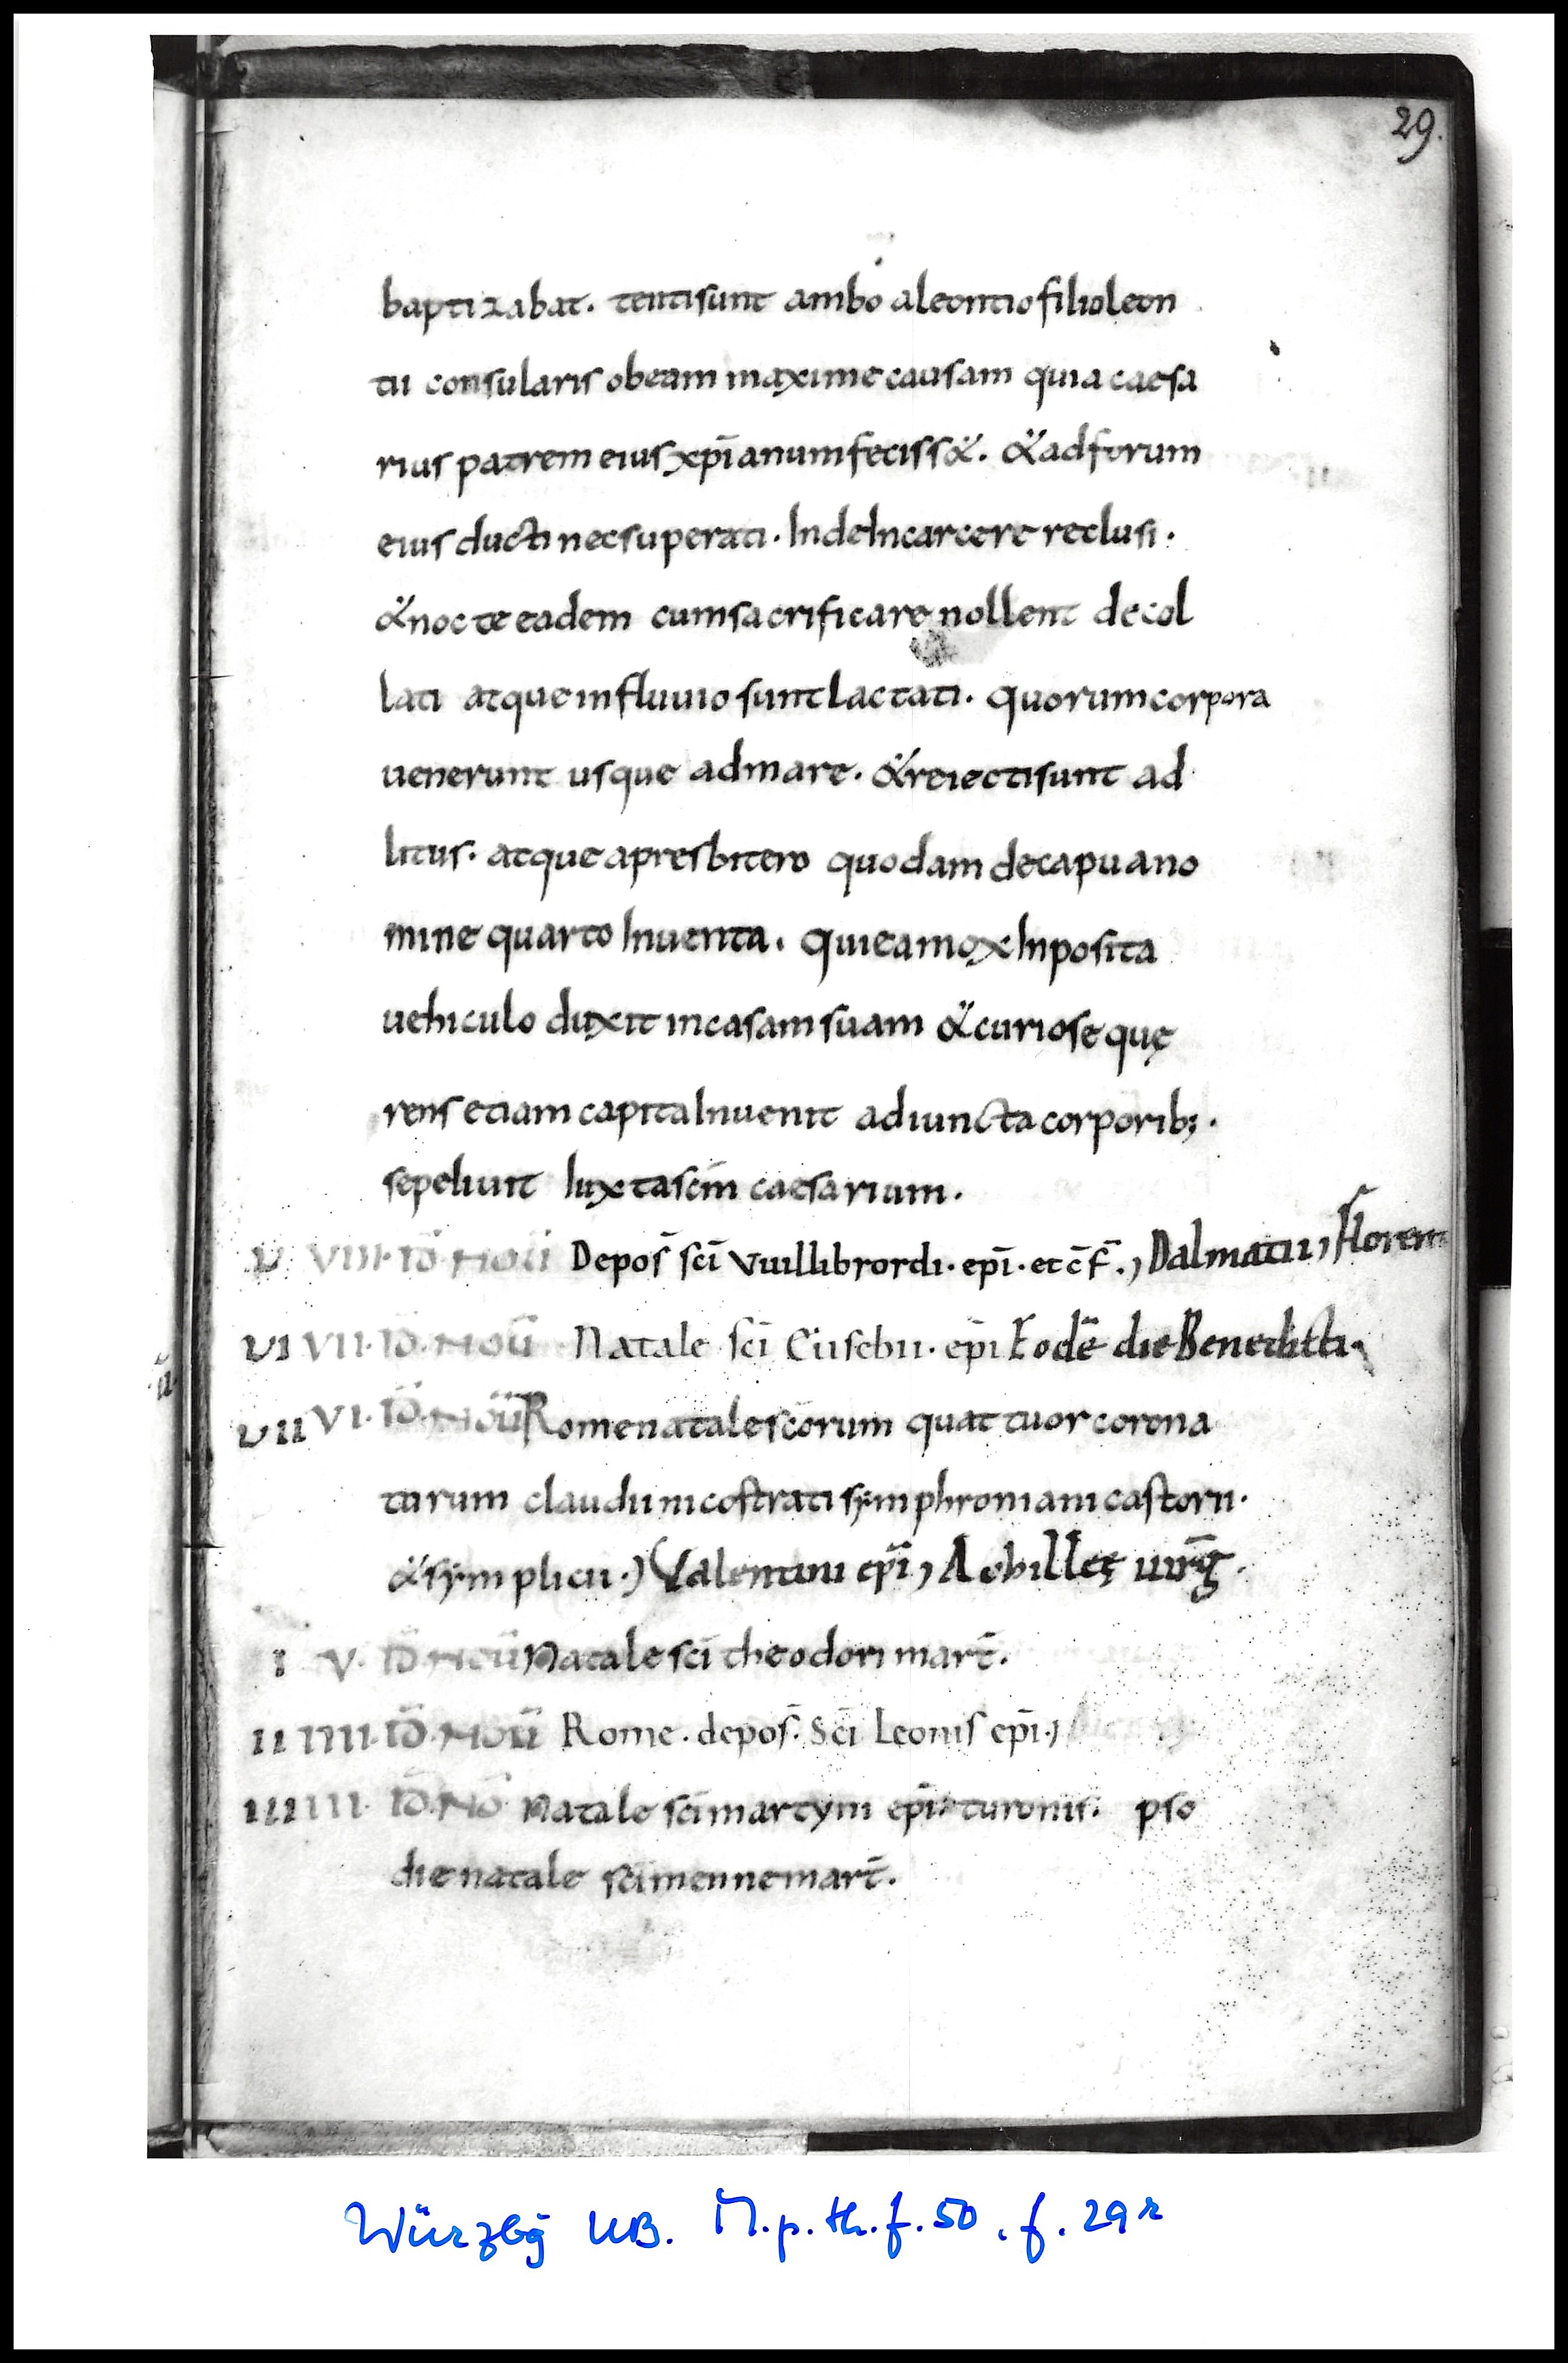 29.
baptizabat. tenti sunt ambo aleontio filio leon
tii consularis obeam maxime causam quia caesa
rius patrem eius xp̄ianum feciss&. & ad forum
eius ducti nec superati. Inde Incarcere reclusi.
& nocte eadem cum sacrificare nollent decol
lati atque in fluuio sunt Iactati. quorum corpora
uenerunt usque ad mare. & reiecti sunt ad
litus. atque apresbitero quodam de capuano
mine quarto Inuenta. qui ea mox Inposita
uehiculo duxit in casam suam & curiose quę
rens etiam capita Inuenit adiuncta corporib;.
sepeliuit Iuxta sc̄m caesarium.
V VIII. ID̄ NOŪ Depos̄ sc̄i Vuillibrordi. ep̄i. et c̄f̄., Dalmatii, Floren
VI VII. ID̄. NOŪ Natale sc̄i Eusebii. ep̄i Eodē die Benedicti.
VII VI. ID̄. NOŪ Rome natale sc̄orum quattuor corona
torum claudii nicostrati symphroniani castorii.
& symplicii.) Valentini ep̄i, Achilleę uirḡ.
I V. ID̄ NOŪ Natale sc̄i theodori mar̄t.
II IIII. ID̄. NOŪ Rome. depos̄. Sc̄i Leonis ep̄i.,
III III. ID̄. NŌ Natale sc̄i martyni ep̄i turonis. pso
die natale sc̄i menne mar̄t.
Würzbg UB. M.p.th.f.50, f. 29r